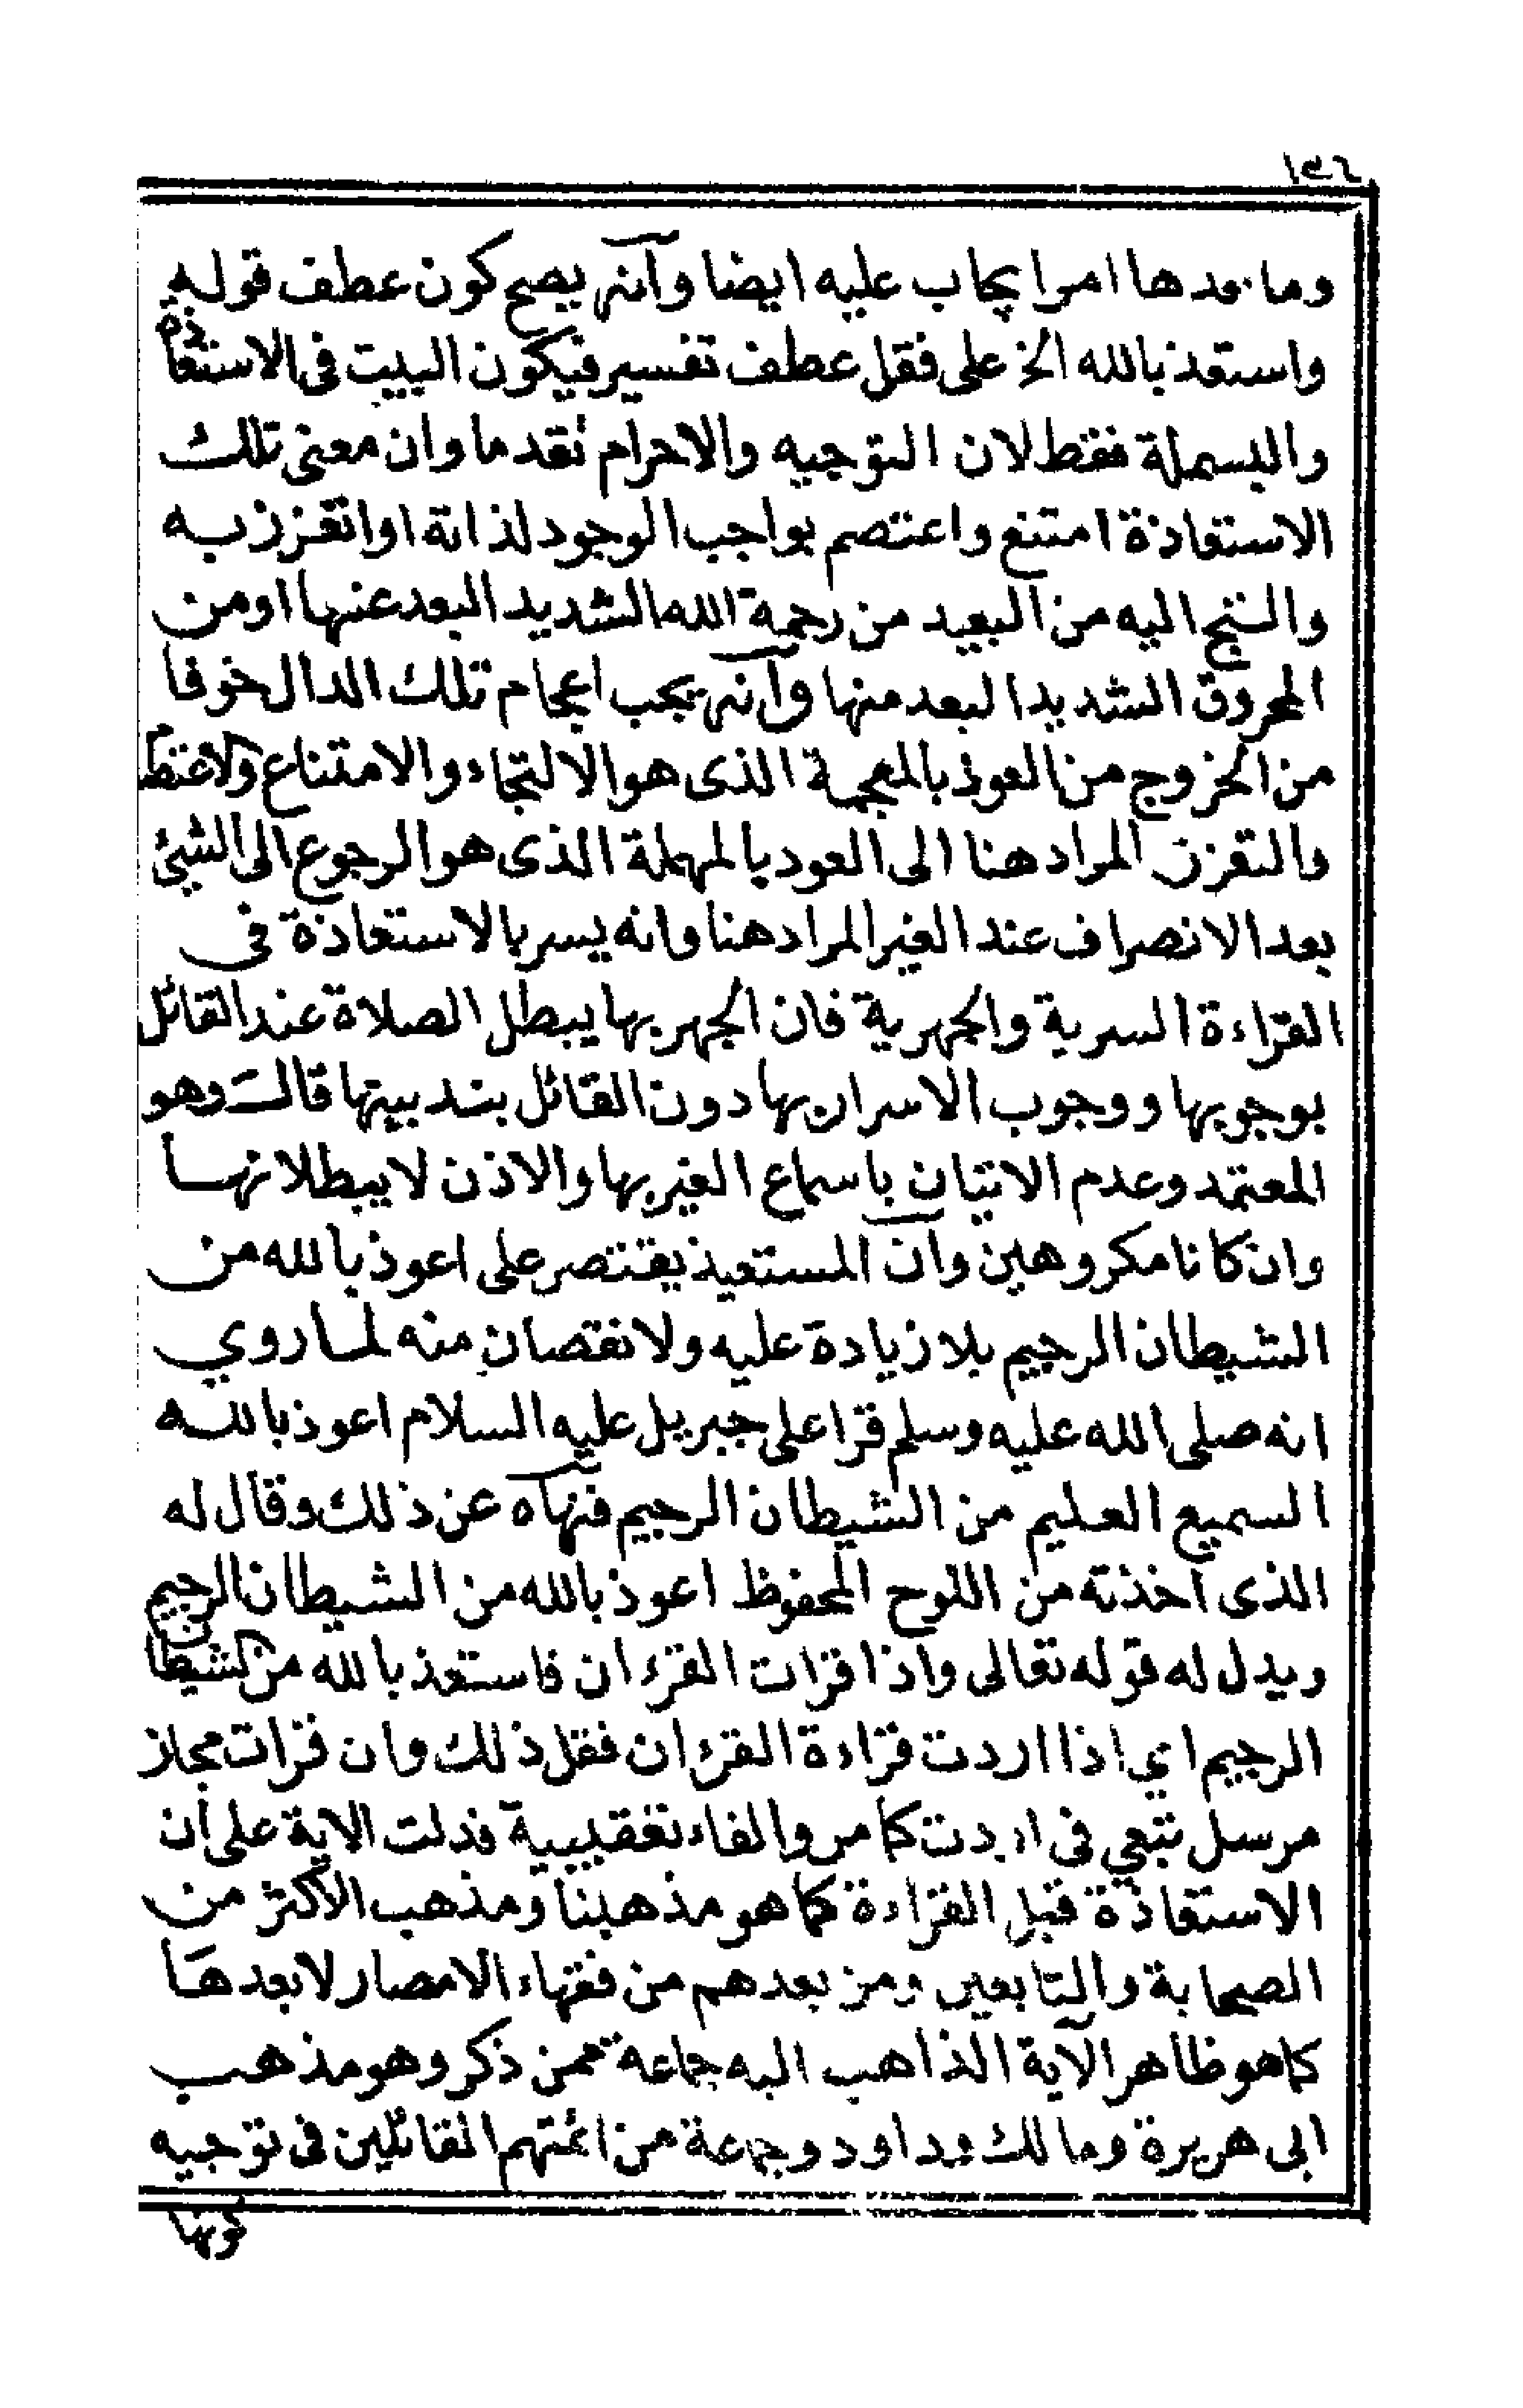 ١٤٦
وما بعدها امرا يجاب عليه ايضا وآنه يصح كون عطف قوله
واستعذ بالله الخ على فقل عطف تفسير فيكون البيت فى الاستعاذة
والبسملة فقط لان التوجيه والاحرام تقدما وان معنى تلك
الاستعاذة امتنع واعتصم بواجب الوجود لذاته او اتعزز به
والتج اليه من البعيد من رحمة الله الشديد البعد عنها او من
المحروق الشديد البعد منها وآنه يجب اعجام تلك الدال خوفا
من الخروج من العوذ بالمعجمة الذى هو الالتجاء والامتناع
والتعزز المراد هنا الى العود بالمهملة الذى هو الرجوع الى الشئ
بعد الانصراف عند الغير المراد هنا وانه يسر بالاستعاذة فى
القراءة السرية والجهرية فان الجهر بها يبطل الصلاة عند القائل
بوجوبها ووجوب الاسرار بها دون القائل بندبيتها قالت وهو
المعتمد وعدم الاتيان باسماع الغير بها والاذن لا يبطلانها
وان كانا مكروهين وآن المستعيذ يقتصر على اعوذ بالله من
الشيطان الرجيم بلا زيادة عليه ولا نقصان منه لما روي
انه صلى الله عليه وسلم قرا على جبريل عليه السلام اعوذ بالله
السميع العليم من الشيطان الرجيم فنهاه عن ذلك وقال له
الذى اخذته من اللوح المحفوظ اعوذ بالله من الشيطان الرجيم
ويدل له قوله تعالى واذا قرات القرءان فاستعذ بالله من الشيطان
الرجيم اي اذا اردت قراءة القرءان فقل ذلك وان قرات مجاز
مرسل تبعي فى اردت كما مر والفاء تعقيبية فدلت الاية على أن
الاستعاذة قبل القراءة كما هو مذهبنا ومذهب الاكثر من
الصحابة والتابعين ومن بعدهم من فقهاء الامصار لا بعدها
كما هو ظاهر الآية الذاهب اليه جماعة ممن ذكر وهو مذهب
ابى هريرة ومالك وداود وجماعة من ائمتهم القائلين فى توجيه
كونها